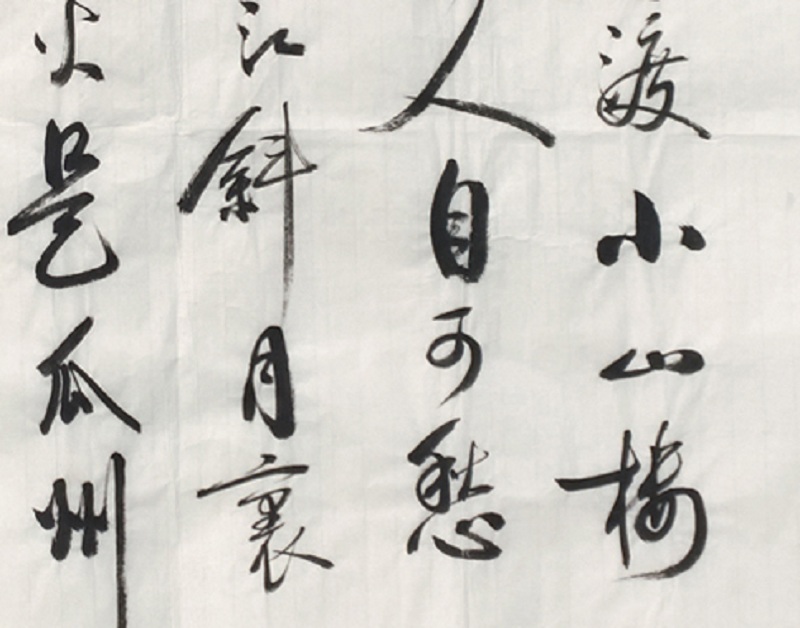 渡小山樓
人自可愁
江斜月裏
火是瓜州